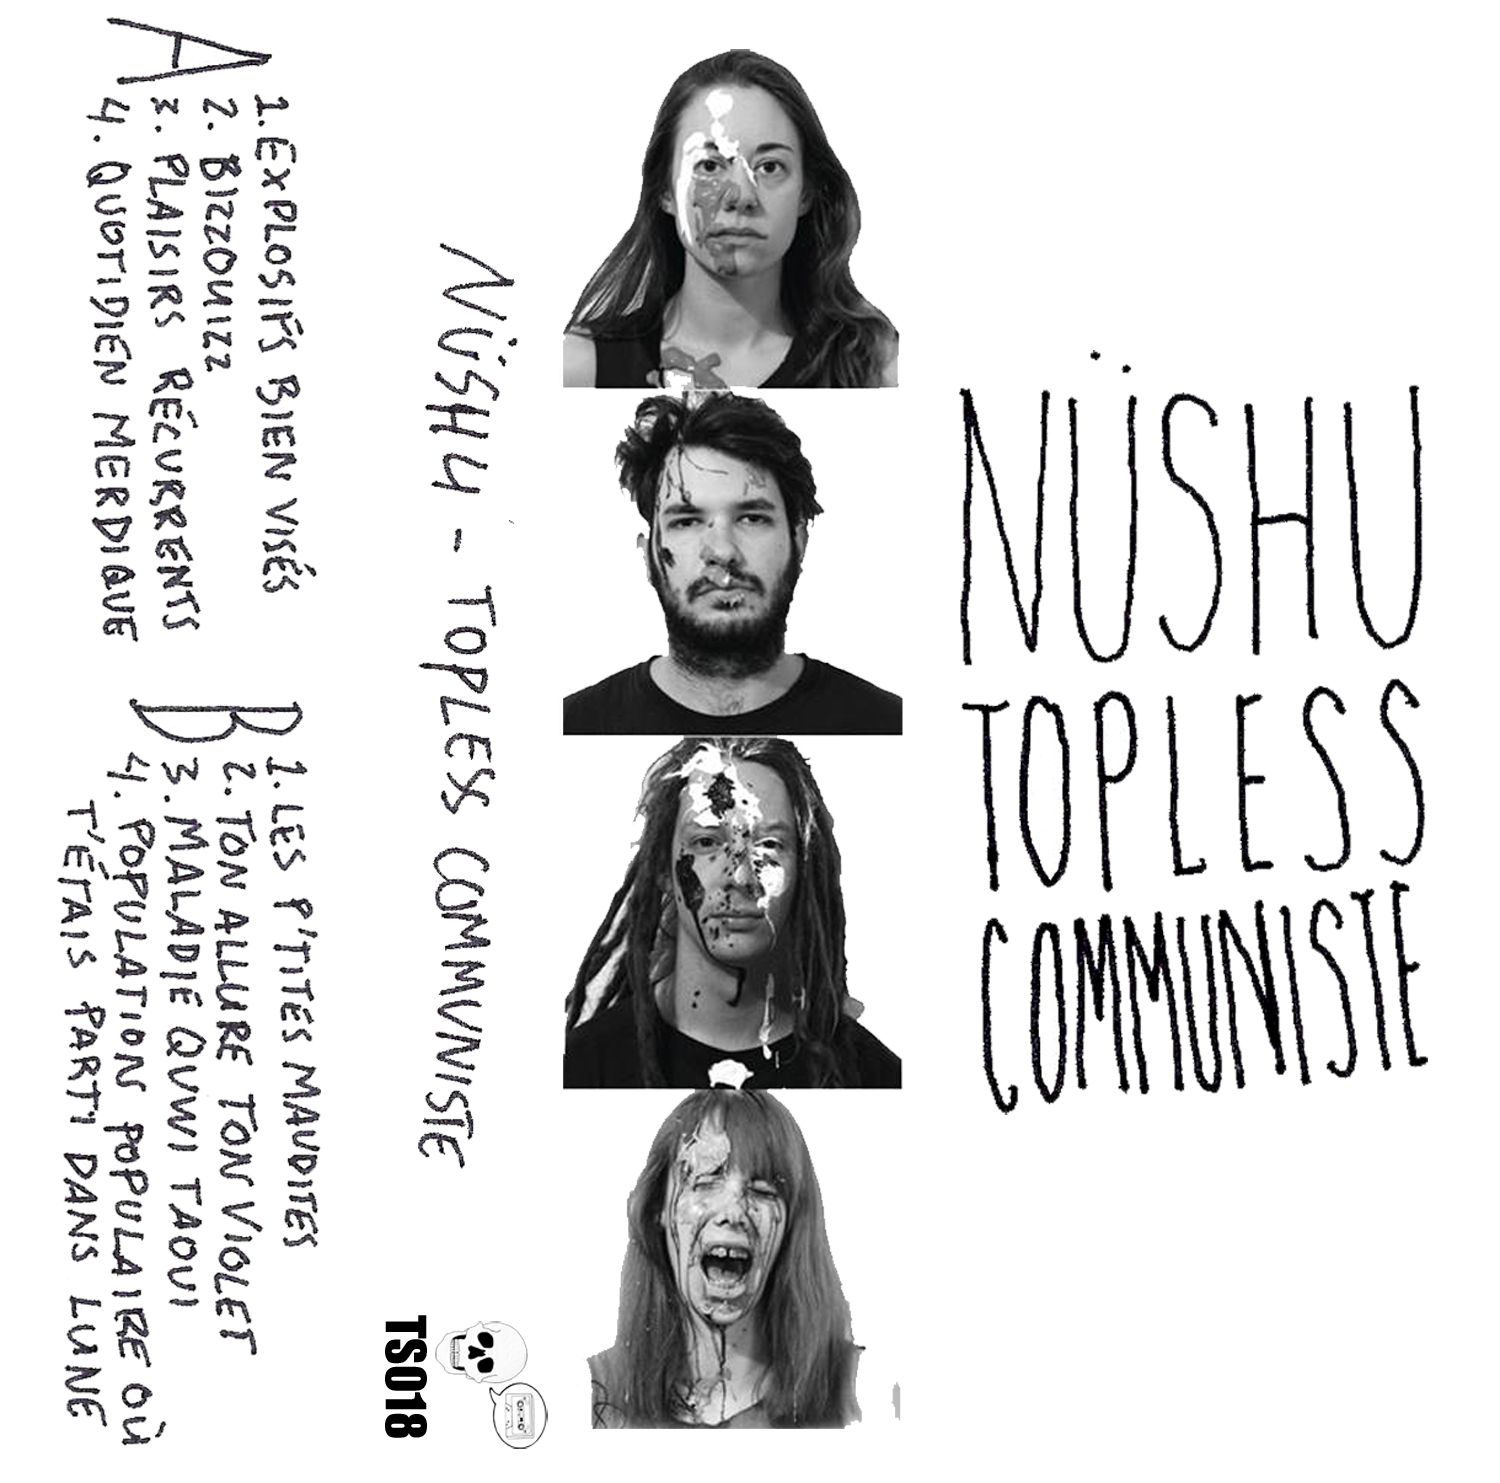 NÜSHU
TOPLESS
COMMUNISTE
NÜSHU - TOPLESS COMMUNISTE
TS018
A
1. EXPLOSIFS BIEN VISÉS
2. BIZZOUIZZ
3. PLAISIRS RÉCURRENTS
4. QUOTIDIEN MERDIQUE
B
1. LES P'TITES MAUDITES
2. TON ALLURE TON VIOLET
3. MALADIE QUWI TAOUI
4. POPULATION POPULAIRE OÙ
T'ÉTAIS PARTI DANS LUNE